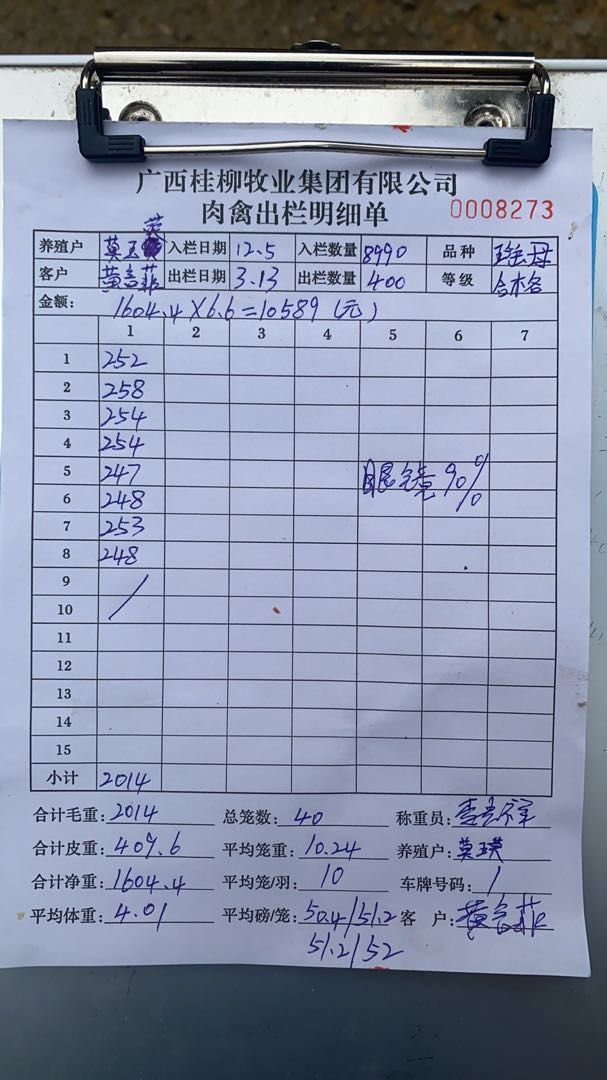 广西桂柳牧业集团有限公司
肉禽出栏明细单 0008273
养殖户 莫玉英 入栏日期 12.5 入栏数量 8990 品种 瑶母
客户 黄言菲 出栏日期 3.13 出栏数量 400 等级 合格
金额: 1604.4×6.6=10589(元)
1 2 3 4 5 6 7
1 252
2 258
3 254
4 254
5 247 眼镜90%
6 248
7 253
8 248
9 /
10
11
12
13
14
15
小计 2014
合计毛重: 2014 总笼数: 40 称重员:
合计皮重: 409.6 平均笼重: 10.24 养殖户: 莫玉英
合计净重: 1604.4 平均笼/羽: 10 车牌号码: /
平均体重: 4.01 平均磅/笼: 50.4/51.2 客 户: 黄言菲
51.2/52